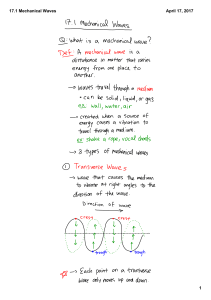 17.1 Mechanical Waves
April 17, 2017
17.1 Mechanical Waves
Q: What is a mechanical wave?
Def: A mechanical wave is a
disturbance in matter that carries
energy from one place to
another.
→ waves travel through a medium
• can be solid, liquid, or gas
ex wall, water, air
→ created when a source of
energy causes a vibration to
travel through a medium.
ex shake a rope, vocal chords
→ 3 types of mechanical waves
① Transverse Waves
→ wave that causes the medium
to vibrate at right angles to the
direction of the wave
Direction of wave
crest
crest
trough
trough
→ Each point on a transverse
wave only moves up and down
1